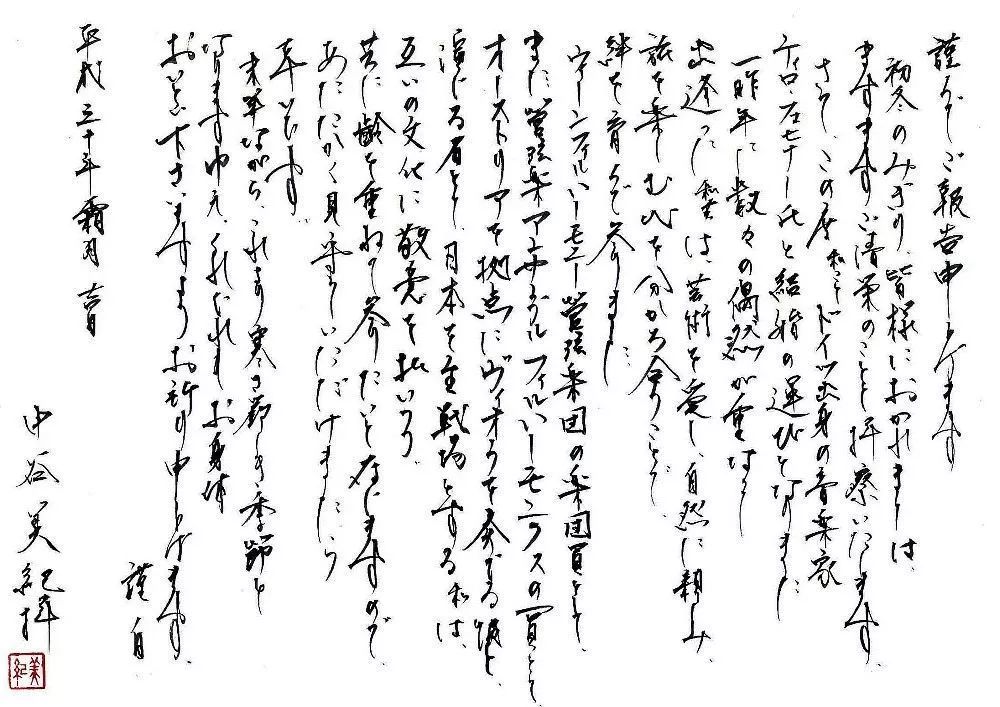 謹んでご報告申し上げます
初冬のみぎり、皆様におかれましては、
ますますご清栄のことと拝察いたします。
さて、この度 私ことドイツ出身の音楽家
ティロ・フェヒナー氏と結婚の運びとなりました
一昨年に数々の偶然が重なり
出逢った私共は、芸術を愛し、自然に親しみ、
旅を楽しむ心を分かち合うことで、
絆を育んで参りました
ウィーンフィルハーモニー管弦楽団の楽団員として、
また管弦楽アンサンブルフィルハーモニクスの一員として
オーストリアを拠点にヴィオラを奏する彼と、
演じる者として、日本を主戦場とする私は、
互いの文化に敬意を払いつつ、
共に齢を重ねて参りたいと存じますので、
あたたかく見守っていただけましたら
幸いです。
末筆ながら、これより寒さ厳しき季節と
なります由え、くれぐれもお身体
おいとい下さいますようお祈り申し上げます。
謹白
平成三十年霜月 吉日
中谷美紀拝
美紀